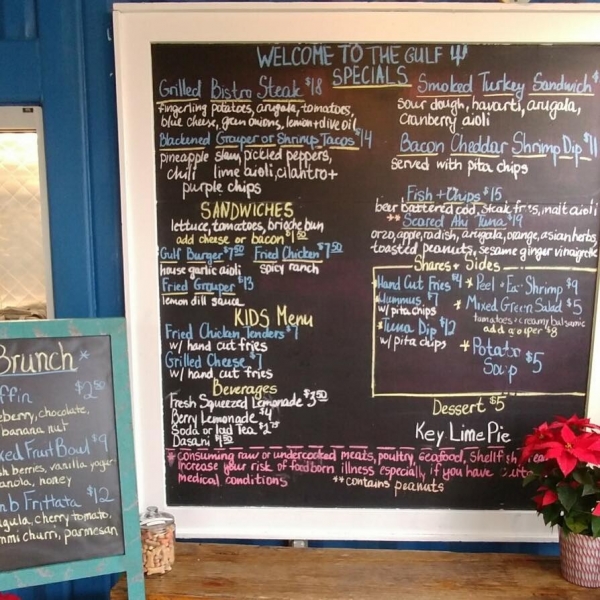 WELCOME TO THE GULF
SPECIALS
Grilled Bistro Steak $18
fingerling potatoes, arugala, tomatoes,
blue cheese, green onions, lemon + olive oil
Blackened Grouper or Shrimp Tacos $14
pineapple slaw, pickled peppers,
chili lime aioli, cilantro +
purple chips
SANDWICHES
lettuce, tomatoes, brioche bun
add cheese or bacon $1.50
Gulf Burger $7.50 Fried Chicken $7.50
house garlic aioli spicy ranch
Fried Grouper $13
lemon dill sauce
KIDS Menu
Fried Chicken Tenders $7
w/ hand cut fries
Grilled Cheese $7
w/ hand cut fries
Beverages
Fresh Squeezed Lemonade $3.50
Berry Lemonade $4
Soda or Iced Tea $2.75
Dasani $1.50
Smoked Turkey Sandwich
sour dough, havarti, arugala,
cranberry aioli
Bacon Cheddar Shrimp Dip $11
served with pita chips
Fish + Chips $15
beer battered cod, steak fries, malt aioli
** Seared Ahi Tuna $19
orzo, apple, radish, arugala, orange, asian herbs,
toasted peanuts, sesame ginger vinaigrette
Shares + Sides
Hand Cut Fries $4
Hummus $7
w/ pita chips
Tuna Dip $12
w/ pita chips
* Peel + Eat Shrimp $9
* Mixed Green Salad $5
tomatoes + creamy balsamic
add grouper $8
* Potato
Soup $5
Dessert $5
Key Lime Pie
* consuming raw or undercooked meats, poultry, seafood, shellfish
increase your risk of foodborn illness especially, if you have
medical conditions
** contains peanuts
Brunch *
ffin $2.50
eberry, chocolate,
banana nut
xed Fruit Bowl $9
sh berries, vanilla yogur
anola, honey
mb Frittata $12
ugula, cherry tomato,
mmi churri, parmesan